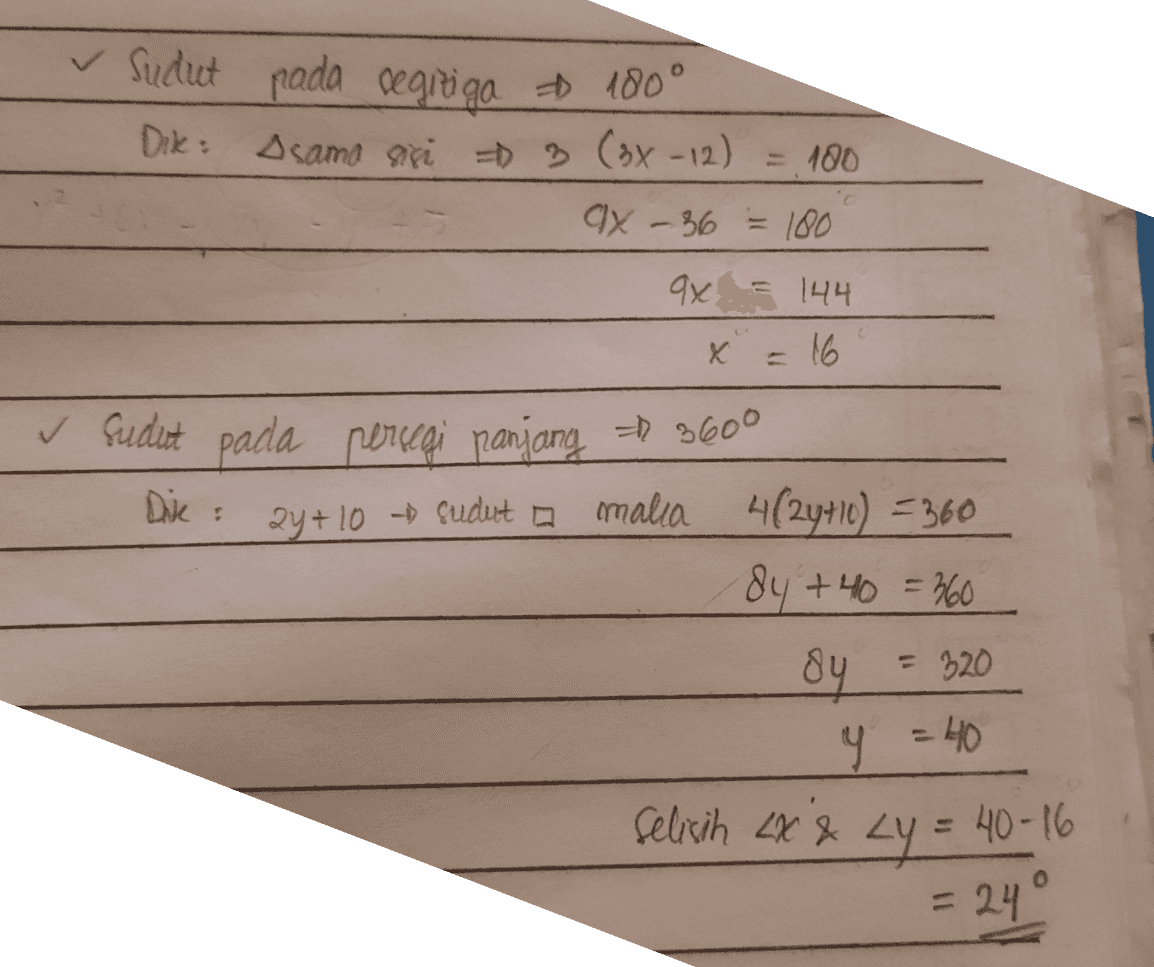 ✓ Sudut pada segitiga ⇒ 180°
Dik : △sama sisi ⇒ 3 (3x - 12) = 180
9x - 36 = 180
9x = 144
x = 16
✓ Sudut pada persegi panjang ⇒ 360°
Dik : 2y + 10 → sudut □ maka 4(2y+10) = 360
8y + 40 = 360
8y = 320
y = 40
Selisih ∠x & ∠y = 40 - 16
= 24°